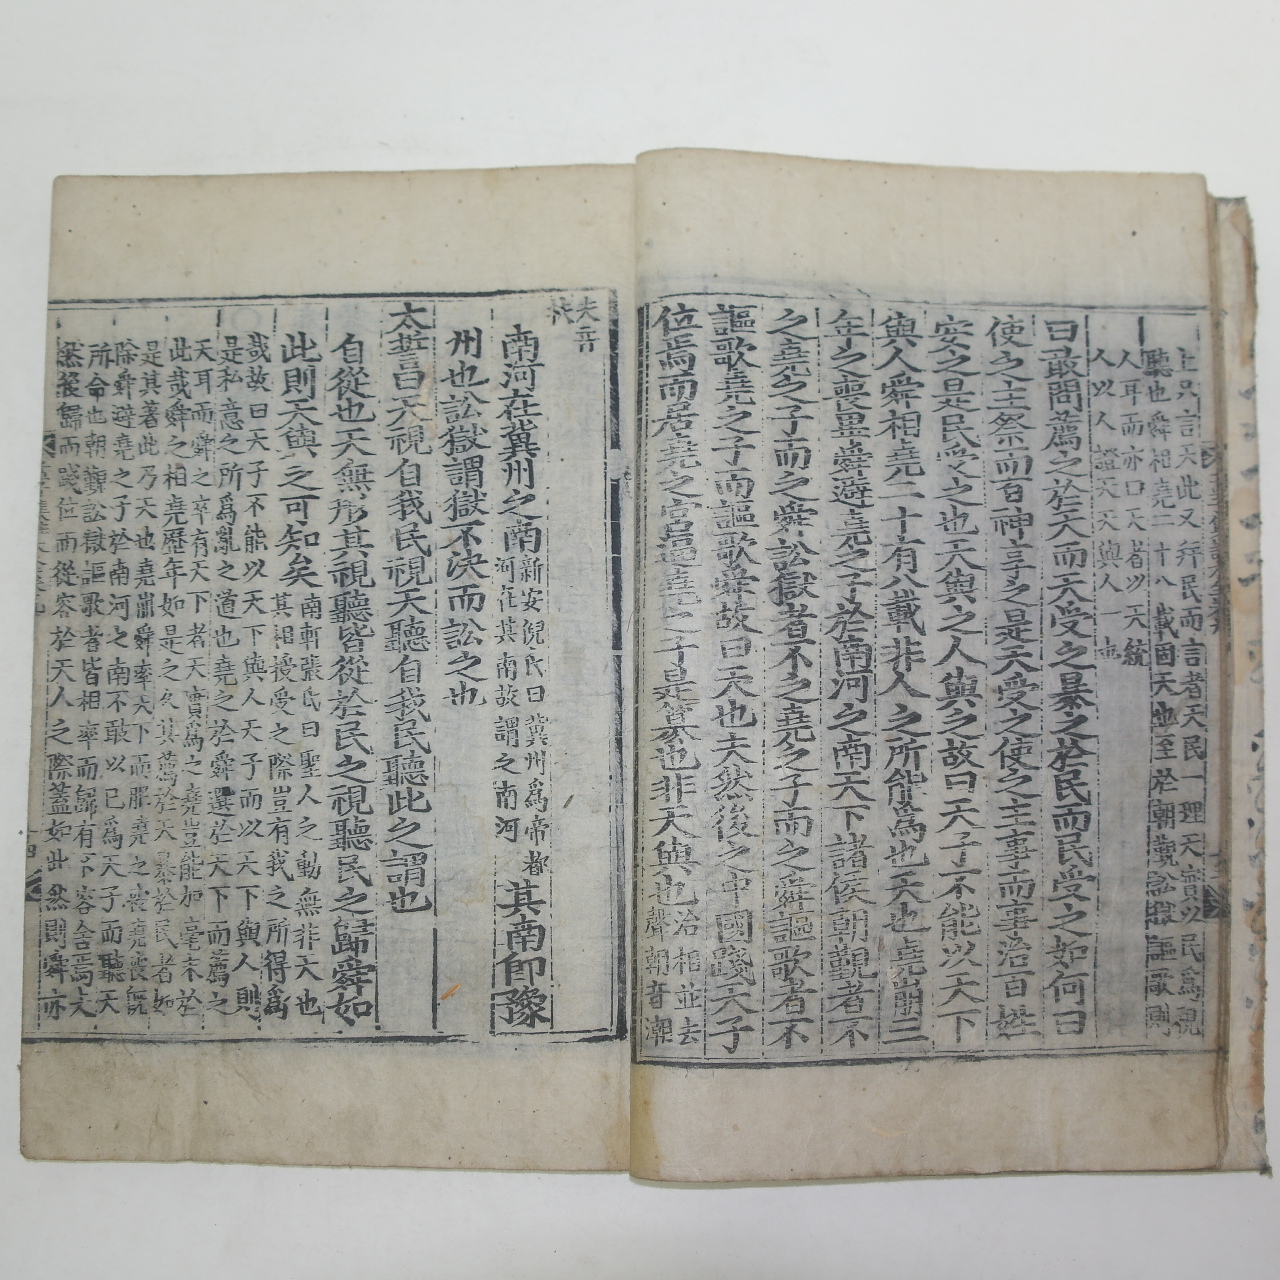 上只言天此又幷民而言者天民一理天實以民爲視
聽也舜相堯二十八載固天也至於朝覲訟獄謳歌則
人耳而亦曰天者以天統
人以人證天天與人一也
曰敢問薦之於天而天受之暴之於民而民受之如何曰
使之主祭而百神享之是天受之使之主事而事治百姓
安之是民受之也天與之人與之故曰天子不能以天下
與人舜相堯二十有八載非人之所能爲也天也堯崩三
年之喪畢舜避堯之子於南河之南天下諸侯朝覲者不
之堯之子而之舜訟獄者不之堯之子而之舜謳歌者不
謳歌堯之子而謳歌舜故曰天也夫然後之中國踐天子
位焉而居堯之宮逼堯之子是簒也非天與也
治相並去
聲朝音潮
夫音
扶
南河在冀州之南
新安倪氏曰冀州爲帝都
河在其南故謂之南河
其南卽豫
州也訟獄謂獄不決而訟之也
太誓曰天視自我民視天聽自我民聽此之謂也
自從也天無形其視聽皆從於民之視聽民之歸舜如
此則天與之可知矣
南軒張氏曰聖人之動無非天也
其相授受之際豈有我之所得爲
哉故曰天子不能以天下與人天子而以天下與人則
是私意之所爲亂之道也堯之於舜選於天下而薦之
天耳而舜之卒有天下者天實爲之堯豈能加毫末於
此哉舜之相堯歷年如是之久其薦於天暴於民者如
是其著此乃天也堯崩舜率天下而服堯之喪堯喪旣
除舜避堯之子於南河之南不敢以己爲天子而聽天
所命也朝覲訟獄謳歌者皆相率而歸有不容舍焉夫
然後歸而踐位而從容於天人之際蓋如此然則舜亦